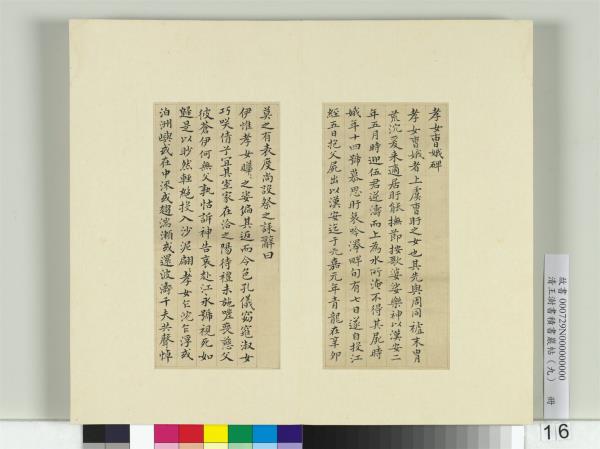 孝女曹娥碑
孝女曹娥者上虞曹盱之女也其先與周同祖末胄
荒沉爰來適居盱能撫節按歌婆娑樂神以漢安二
年五月時迎伍君逆濤而上為水所淹不得其屍時
娥年十四號慕思盱哀吟澤畔旬有七日遂自投江
死經五日抱父屍出以漢安迄于元嘉元年青龍在辛卯
莫之有表度尚設祭之誄辭曰
伊惟孝女曄之姿偏其返而令色孔儀窈窕淑女
巧咲倩子宜其室家在洽之陽待禮未施嗟喪慈父
彼蒼伊何無父孰怙訴神告哀赴江永號視死如
歸是以眇然輕絕投入沙泥翩孝女乍沉乍浮或
泊洲嶼或在中流或趨湍瀨或還波濤千夫失聲悼
故書 000729N000000000
清王澍書積書巖帖（九） 冊
16